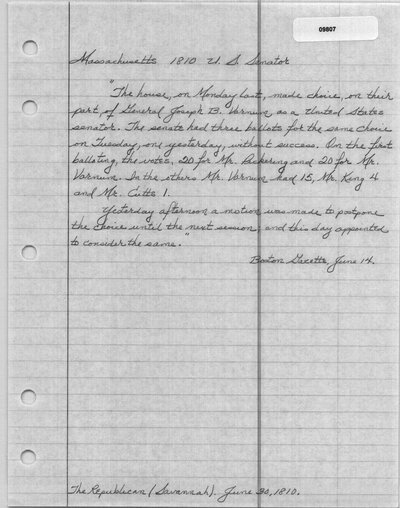 09807
Massachusetts 1810 U. S. Senator
"The house, on Monday last, made choice, on their
part, of General Joseph B. Varnum as a United States
senator. The senate had three ballots for the same choice
on Tuesday, one yesterday, without success. On the first
balloting, the votes, 20 for Mr. Pickering and 20 for Mr.
Varnum. In the others Mr. Varnum had 15, Mr. King 4
and Mr. Cutts 1.
Yesterday afternoon a motion was made to postpone
the choice until the next session; and this day appointed
to consider the same."
Boston Gazette, June 14.
The Republican (Savannah). June 30, 1810.